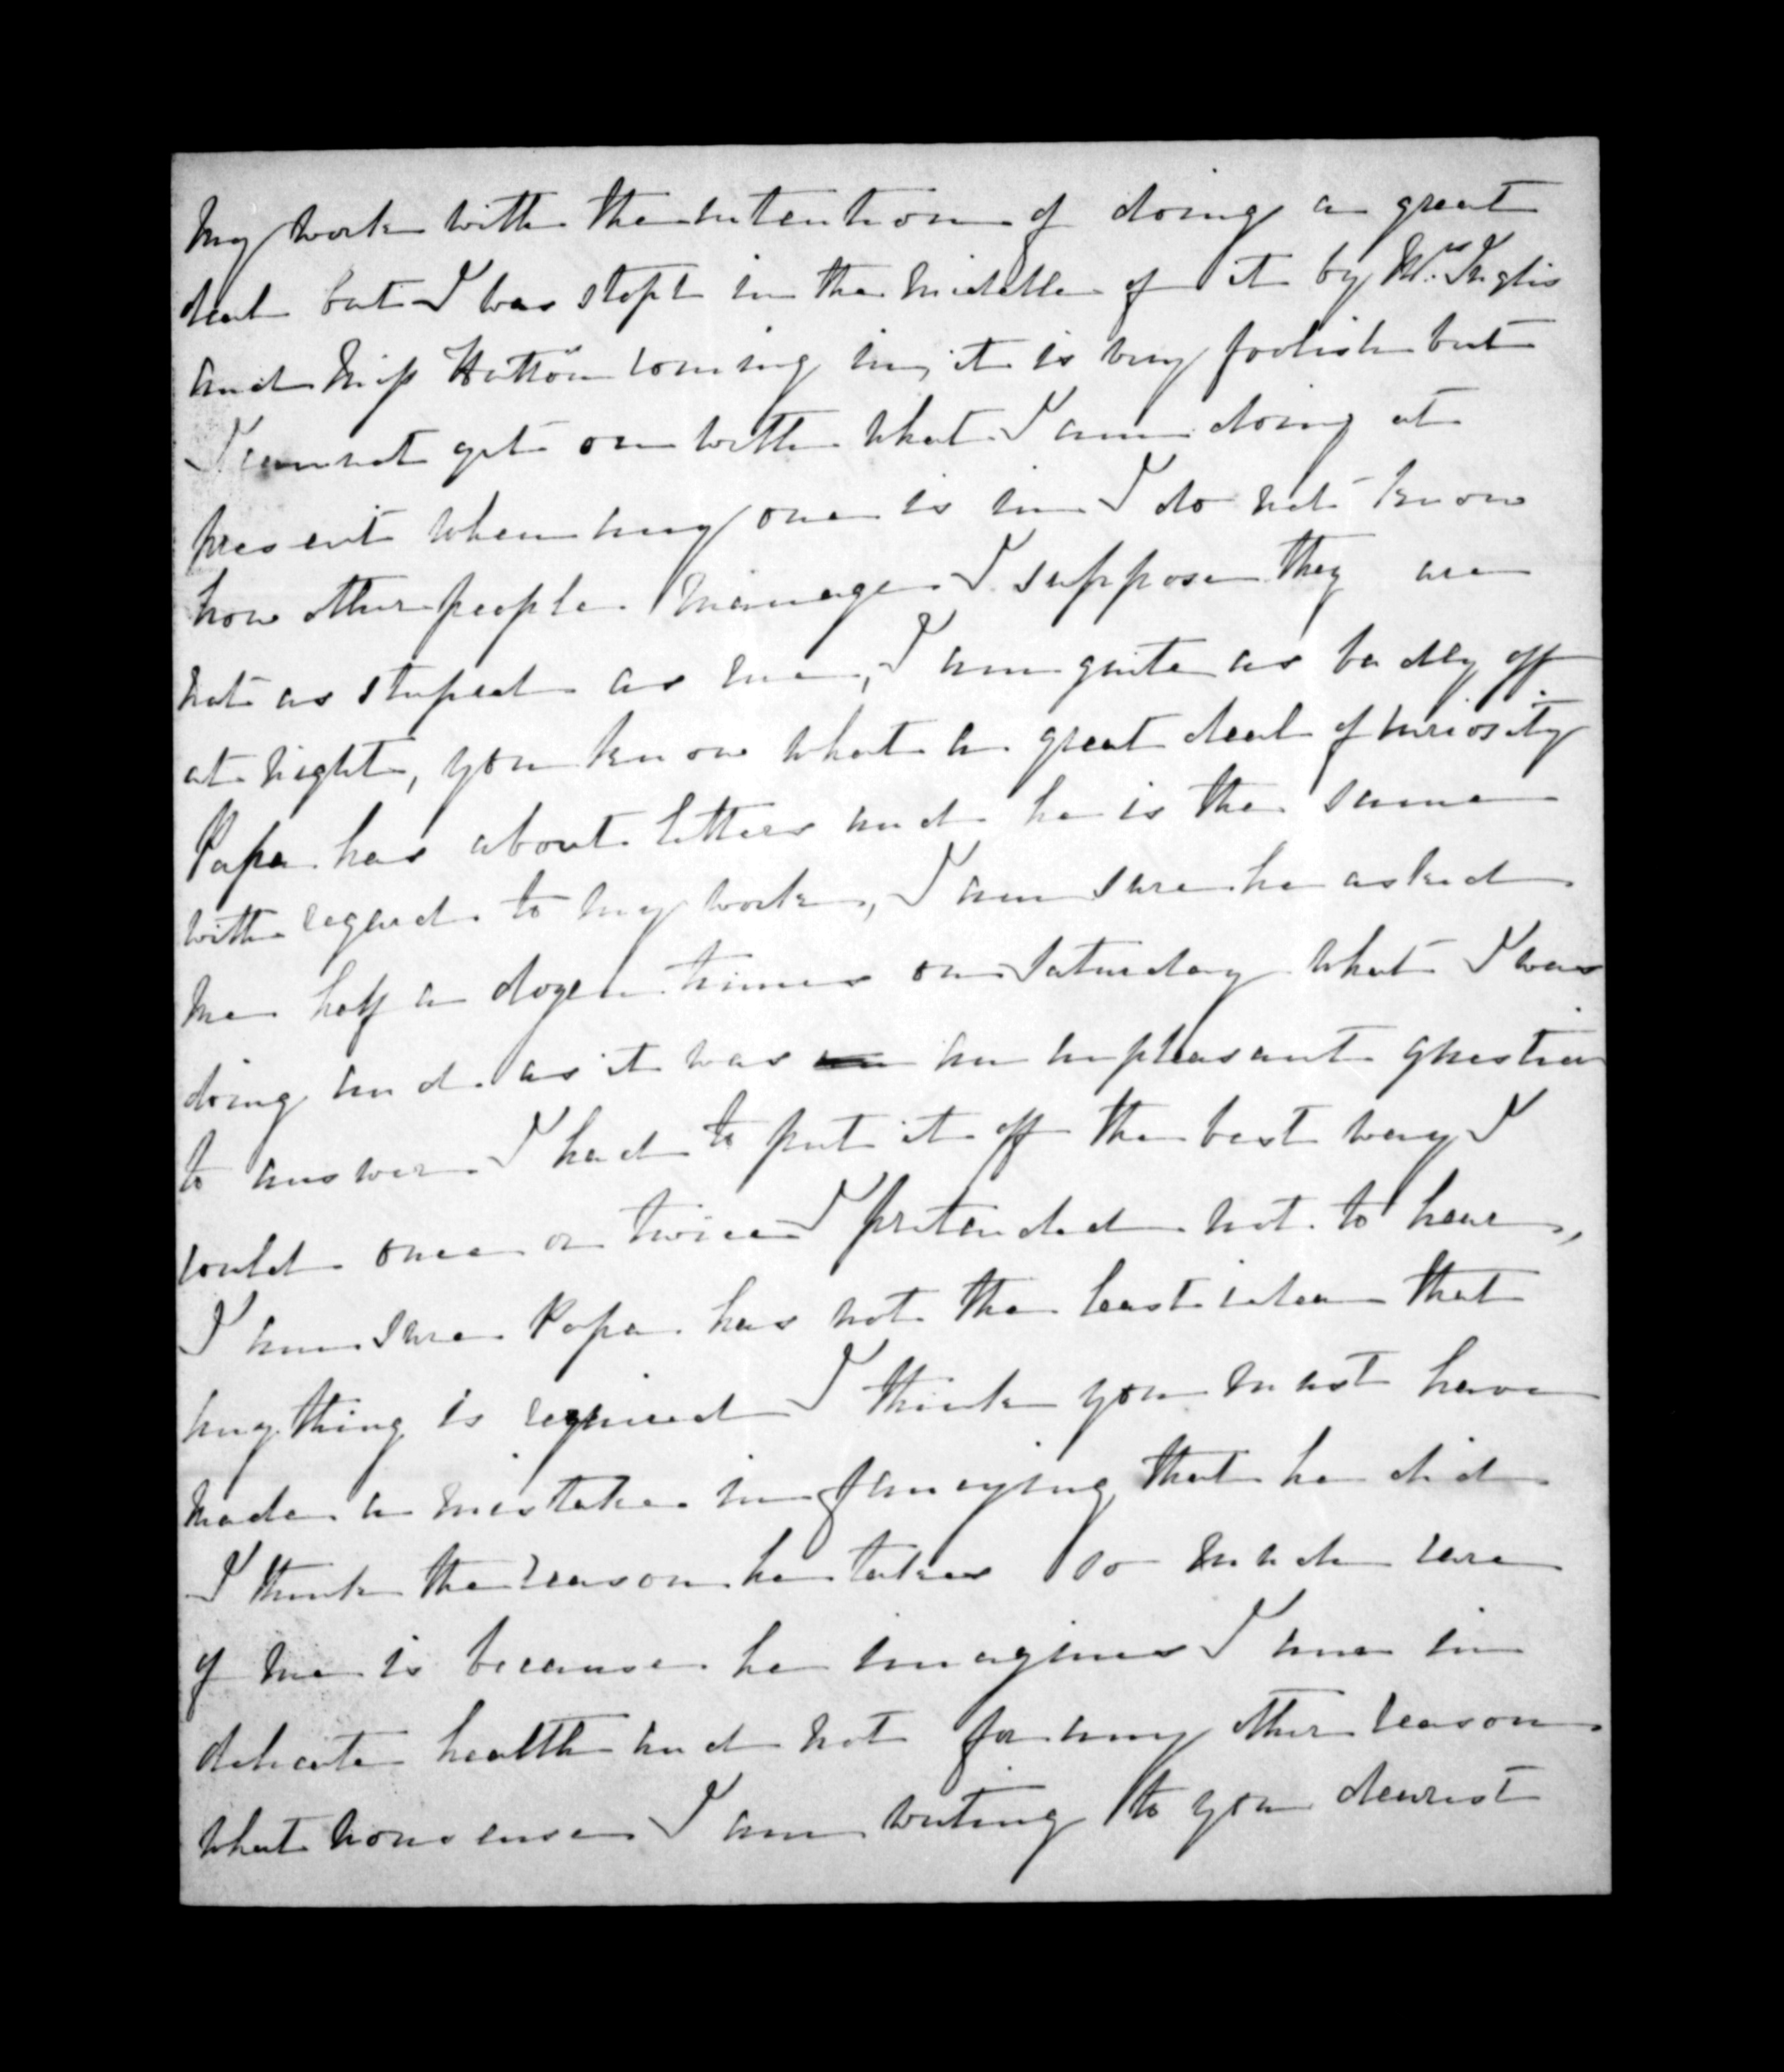 my work with the intention of doing a great
deal but I was stopt in the middle of it by Mrs Inglis
and Miss Hutton coming in, it is very foolish but
I cannot get on with what I am doing at
present when any one is in I do not know
how other people manage I suppose they are
not as stupid as me, I am quite as badly off
at night, you know what a great deal of curiosity
Papa has about letters and he is the same
with regard to my work, I am sure he asked
me half a dozen times on Saturday what I was
doing and as it was an unpleasant question
to answer I had to put it off the best way I
could once or twice I pretended not to hear,
I am sure Papa has not the least idea that
anything is required I think you must have
made a mistake in fancying that he did
I think the reason he takes so much care
of me is because he imagines I am in
delicate health and not for any other reason
what nonsense I am writing to you dearest